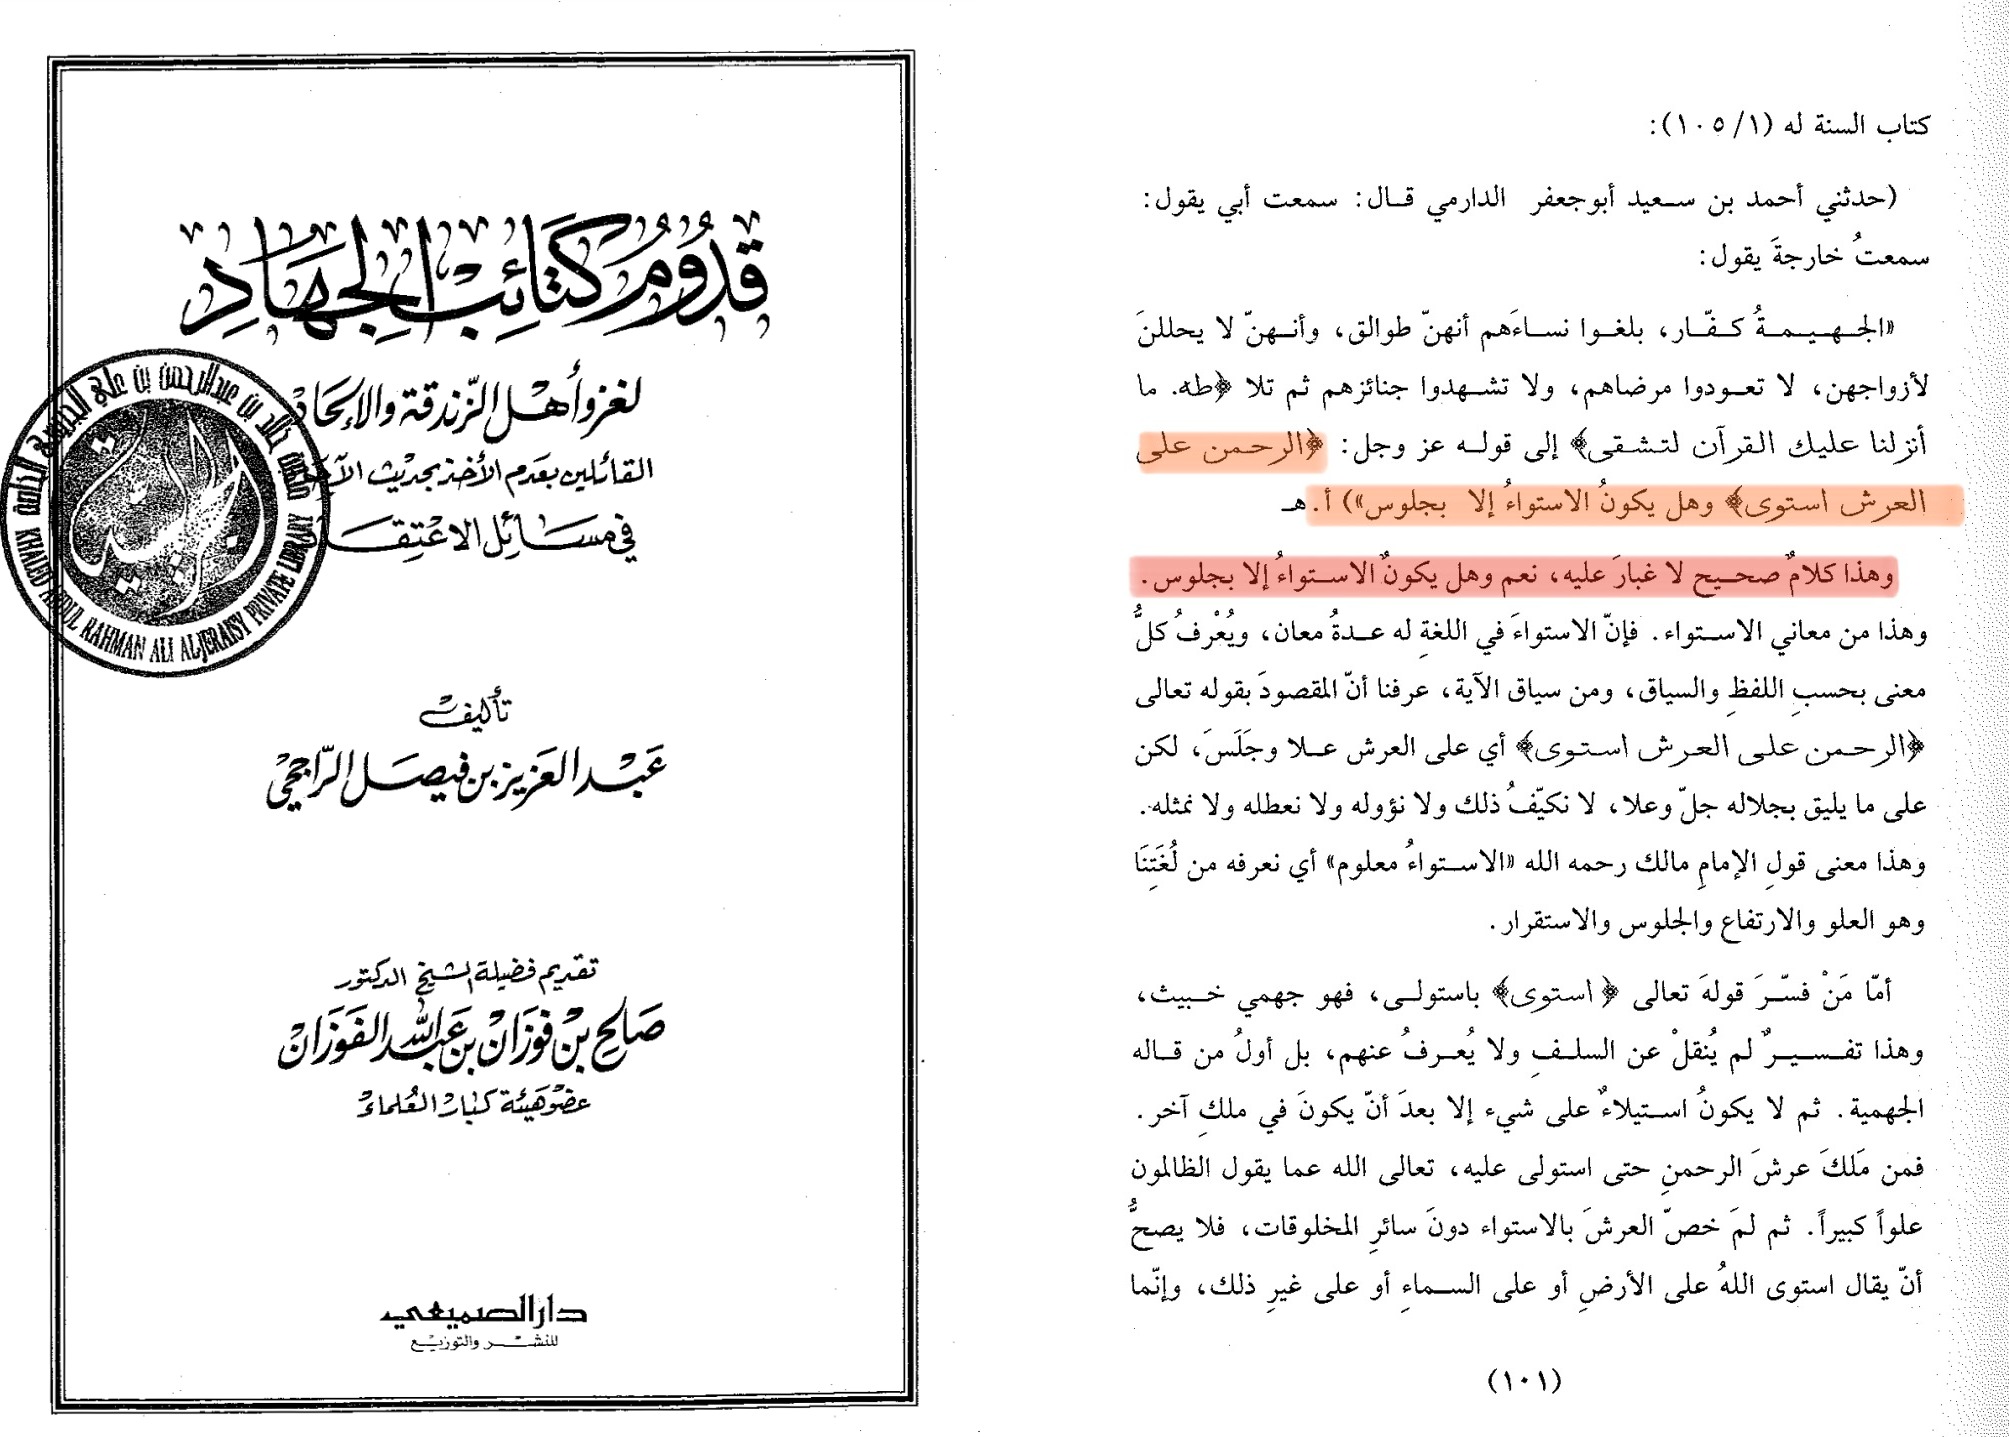 قدوم كتائب الجهاد
لغزو أهل الزندقة والإلحاد
القائلين بعدم الأخذ بحديث الآحاد
في مسائل الاعتقاد
خالد بن عبدالرحمن بن علي الجريسي الخاصة
الجريسي
KHALED ABDUL RAHMAN ALI ALJERAISY PRIVATE LIBRARY
تأليف
عبد العزيز بن فيصل الراجحي
تقديم فضيلة الشيخ الدكتور
صالح بن فوزان بن عبد الله الفوزان
عضو هيئة كبار العلماء
دار الصميعي
للنشر والتوزيع
كتاب السنة له (١/ ١٠٥):
(حدثني أحمد بن سعيد أبوجعفر الدارمي قال: سمعت أبي يقول:
سمعتُ خارجةَ يقول:
«الجهيمةُ كفّار، بلغوا نساءَهم أنهنّ طوالق، وأنهنّ لا يحللنَ
لأزواجهن، لا تعودوا مرضاهم، ولا تشهدوا جنائزهم ثم تلا ﴿طه. ما
أنزلنا عليك القرآن لتشقى﴾ إلى قوله عز وجل: ﴿الرحمن على
العرش استوى﴾ وهل يكونُ الاستواءُ إلا بجلوس») أ. هـ
وهذا كلامٌ صحيح لا غبارَ عليه، نعم وهل يكونُ الاستواءُ إلا بجلوس.
وهذا من معاني الاستواء. فإنّ الاستواءَ في اللغةِ له عدةُ معان، ويُعْرفُ كلُّ
معنى بحسبِ اللفظِ والسياق، ومن سياق الآية، عرفنا أنّ المقصودَ بقوله تعالى
﴿الرحمن على العرش استوى﴾ أي على العرش علا وجَلَسَ، لكن
على ما يليق بجلاله جلّ وعلا، لا نكيّفُ ذلك ولا نؤوله ولا نعطله ولا نمثله.
وهذا معنى قولِ الإمامِ مالك رحمه الله «الاستواءُ معلوم» أي نعرفه من لُغَتِنَا
وهو العلو والارتفاع والجلوس والاستقرار.
أمّا مَنْ فسّرَ قولهَ تعالى ﴿استوى﴾ باستولى، فهو جهمي خبيث،
وهذا تفسيرٌ لم يُنقلْ عن السلفِ ولا يُعرفُ عنهم، بل أولُ من قاله
الجهمية. ثم لا يكونُ استيلاءٌ على شيء إلا بعدَ أنّ يكونَ في ملكِ آخر.
فمن مَلكَ عرشَ الرحمنِ حتى استولى عليه، تعالى الله عما يقول الظالمون
علواً كبيراً. ثم لمَ خصّ العرشَ بالاستواء دونَ سائرِ المخلوقات، فلا يصحُّ
أنّ يقال استوى اللهُ على الأرضِ أو على السماءِ أو على غيرِ ذلك، وإنّما
(١٠١)